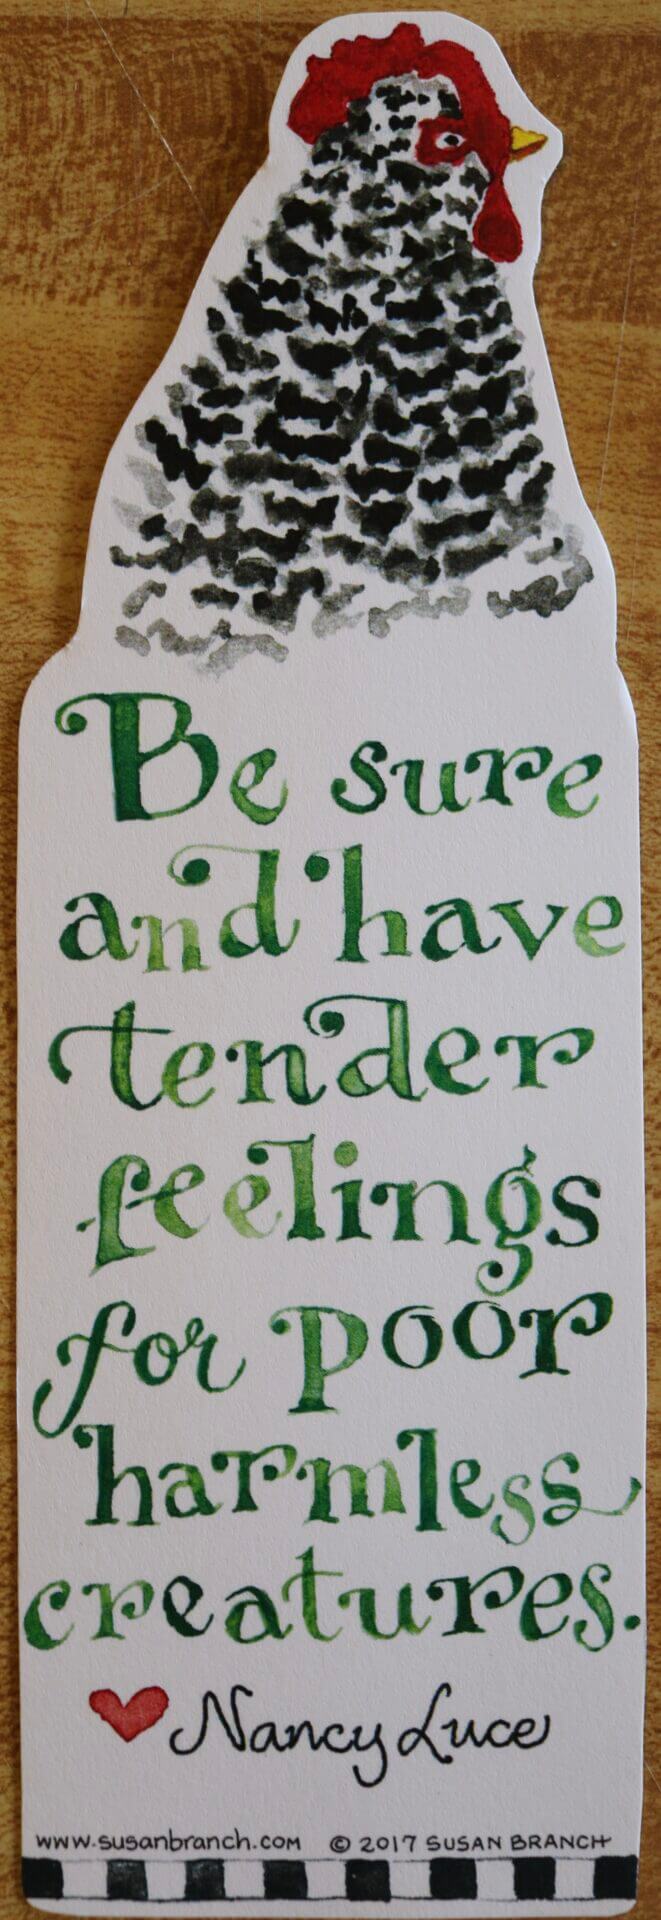 Be sure
and have
tender
feelings
for poor
harmless
creatures.
Nancy Luce
www.susanbranch.com © 2017 SUSAN BRANCH